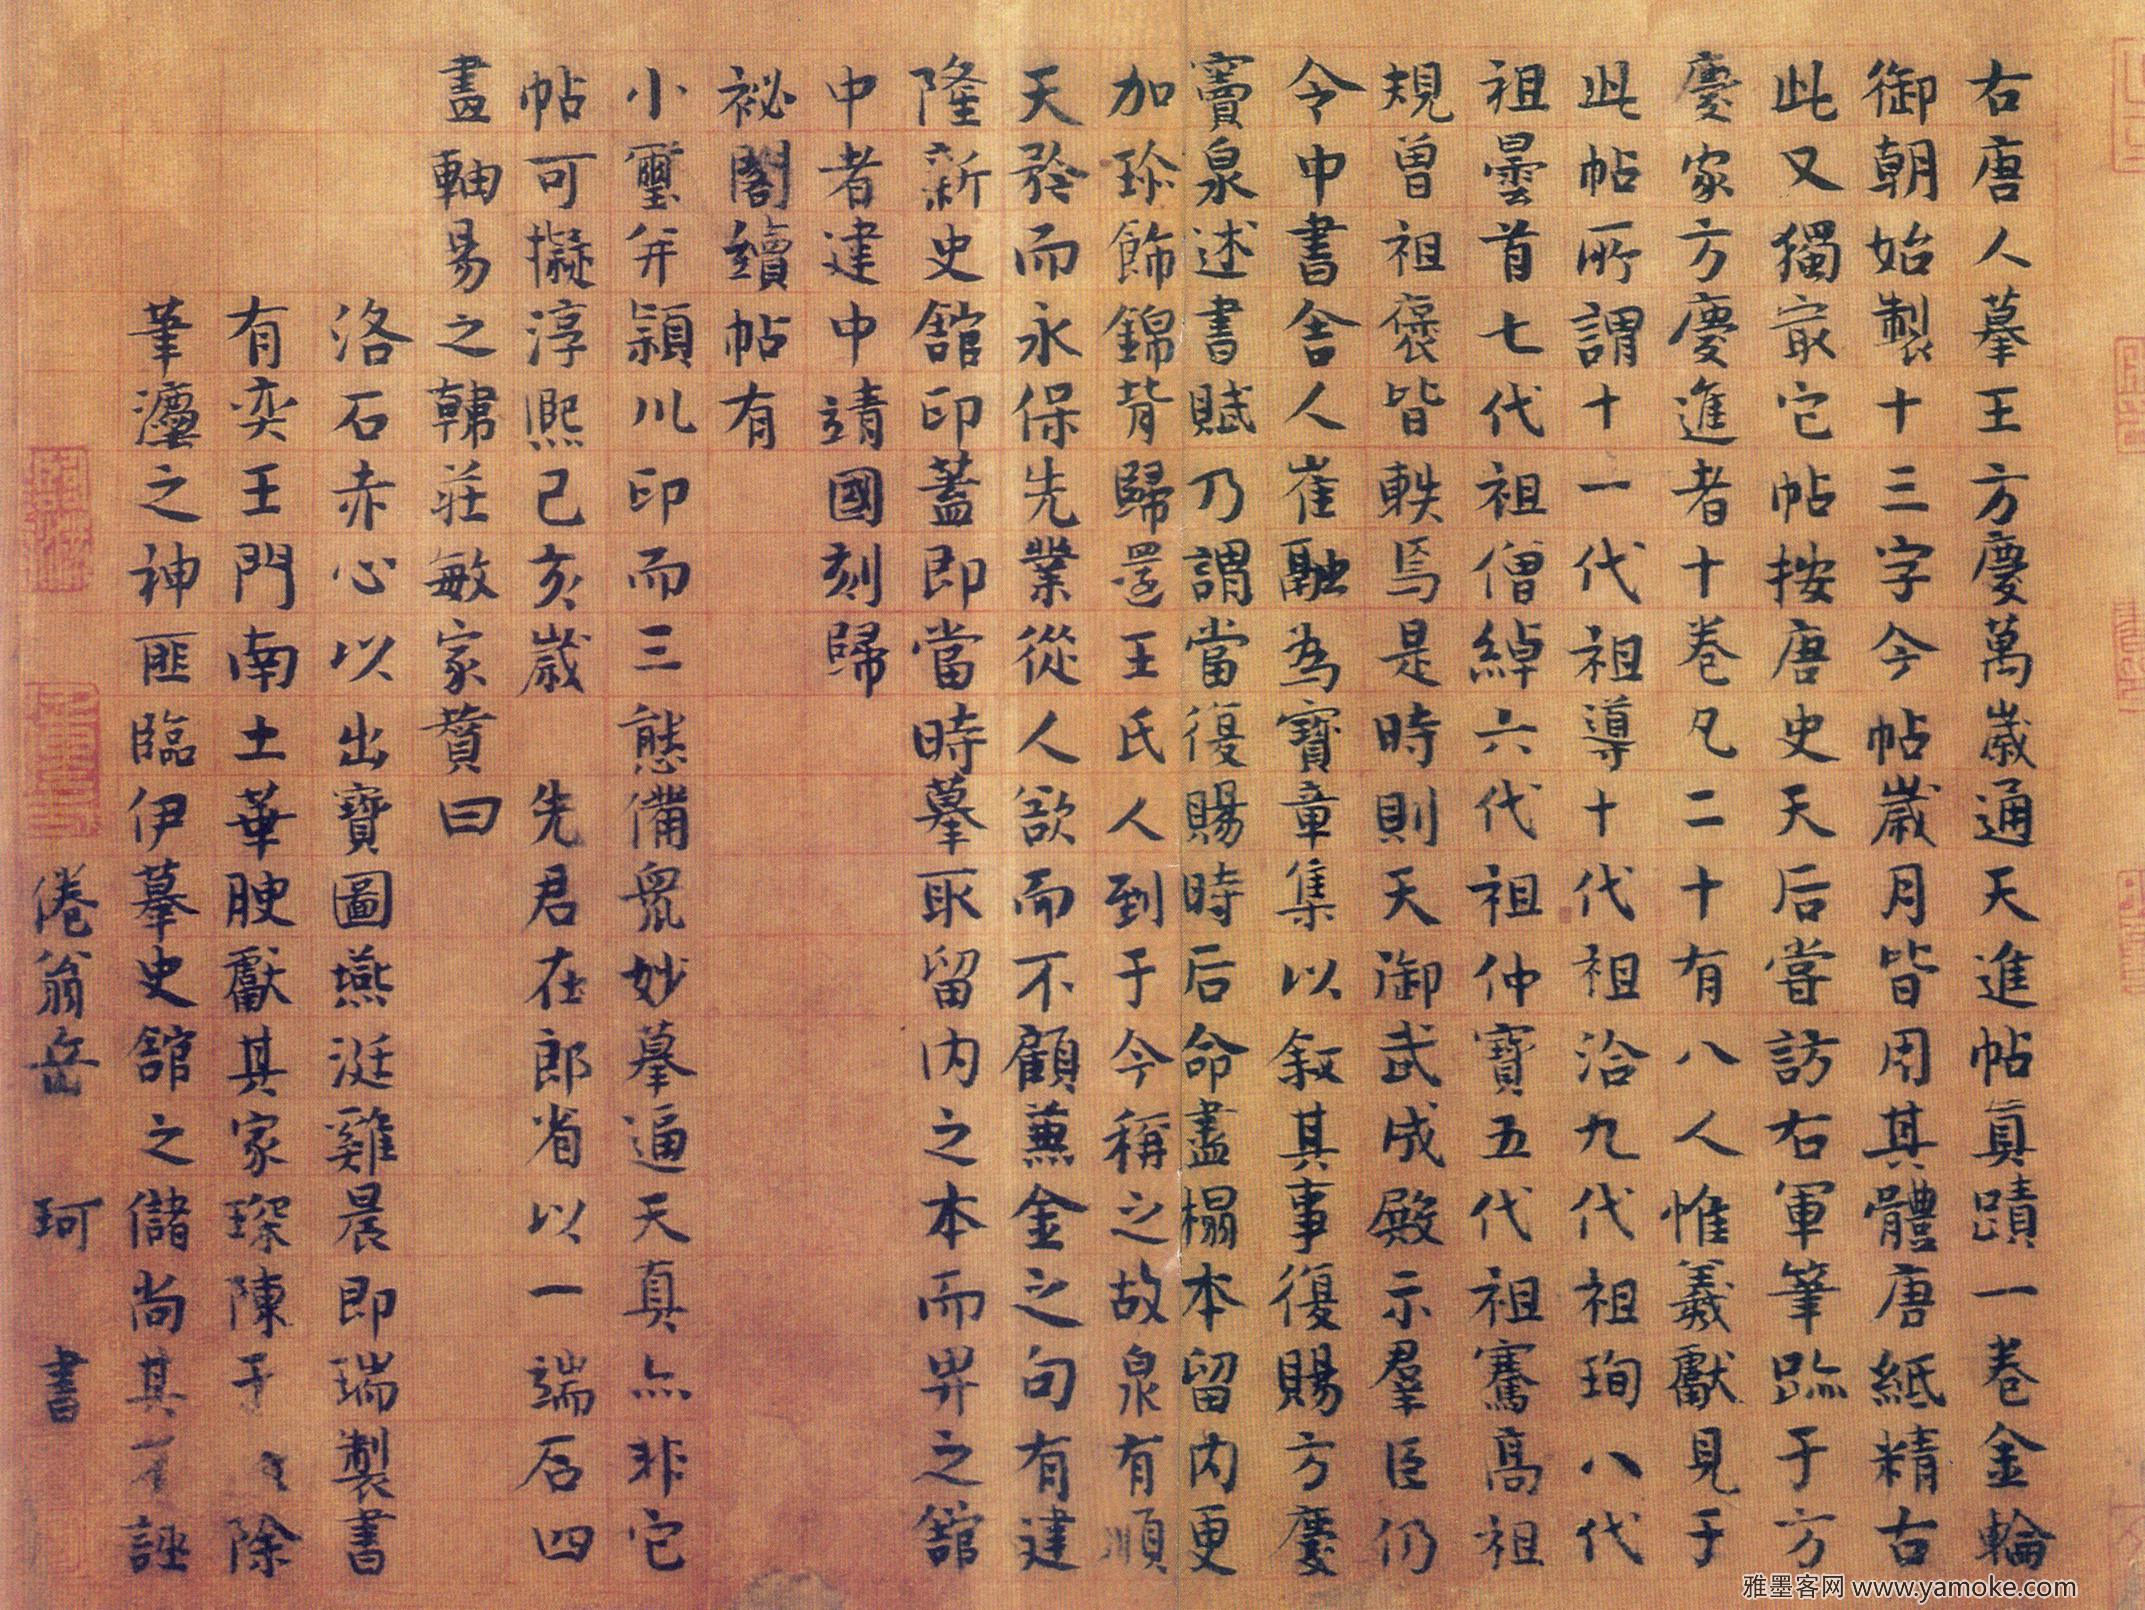 右唐人摹王方慶萬歲通天進帖真蹟一卷金輪
御朝始製十三字今帖歲月皆用其體唐紙精古
此又獨冣它帖按唐史天后嘗訪右軍筆跡于方
慶家方慶進者十卷凡二十有八人惟羲獻見于
此帖所謂十一代祖導十代祖洽九代祖珣八代
祖曇首七代祖僧綽六代祖仲寶五代祖騫高祖
規曾祖褒皆軼焉是時則天御武成殿示羣臣仍
令中書舍人崔融為寶章集以敘其事復賜方慶
竇泉述書賦乃謂當復賜時后命盡榻本留內更
加珍飾錦背歸還王氏人到于今稱之故泉有順
天矜而永保先業從人欲而不顧兼金之句有建
隆新史舘印蓋即當時摹取留內之本而畀之舘
中者建中靖國刻歸
祕閣續帖有
小璽并潁川印而三態備眾妙摹逼天真亦非它
帖可擬淳熙己亥歲 先君在郎省以一端石四
畫軸易之韓莊敏家贊曰
洛石赤心以出寶圖燕涎雞晨即瑞製書
有奕王門南土華腴獻其家琛陳于除
筆灋之神匪臨伊摹史舘之儲尚其不誣
倦翁岳珂書
雅墨客网 www.yamoke.com